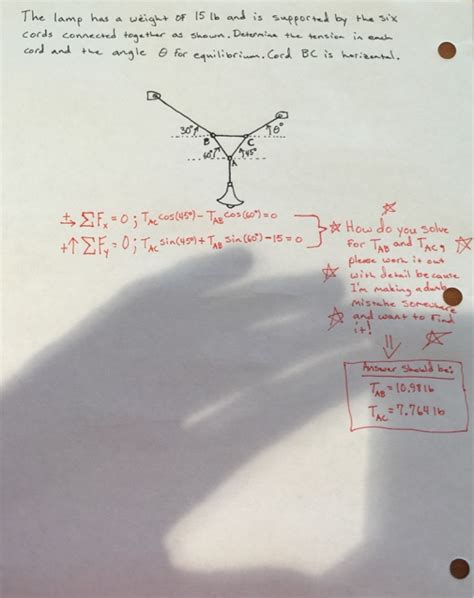 The lamp has a weight of 15 lb and is supported by the six
cords connected together as shown. Determine the tension in each
cord and the angle θ for equilibrium. Cord BC is horizontal.
30°
θ°
B
C
60°
45°
A
→+ ΣFx = 0 ; TAC cos(45°) - TAB cos(60°) = 0
+↑ ΣFy = 0 ; TAC sin(45°) + TAB sin(60°) - 15 = 0
How do you solve
for TAB and TAC,
please work it out
with detail because
I'm making a dumb
mistake somewhere
and want to find
it!
Answer should be:
TAB = 10.98 lb
TAC = 7.764 lb